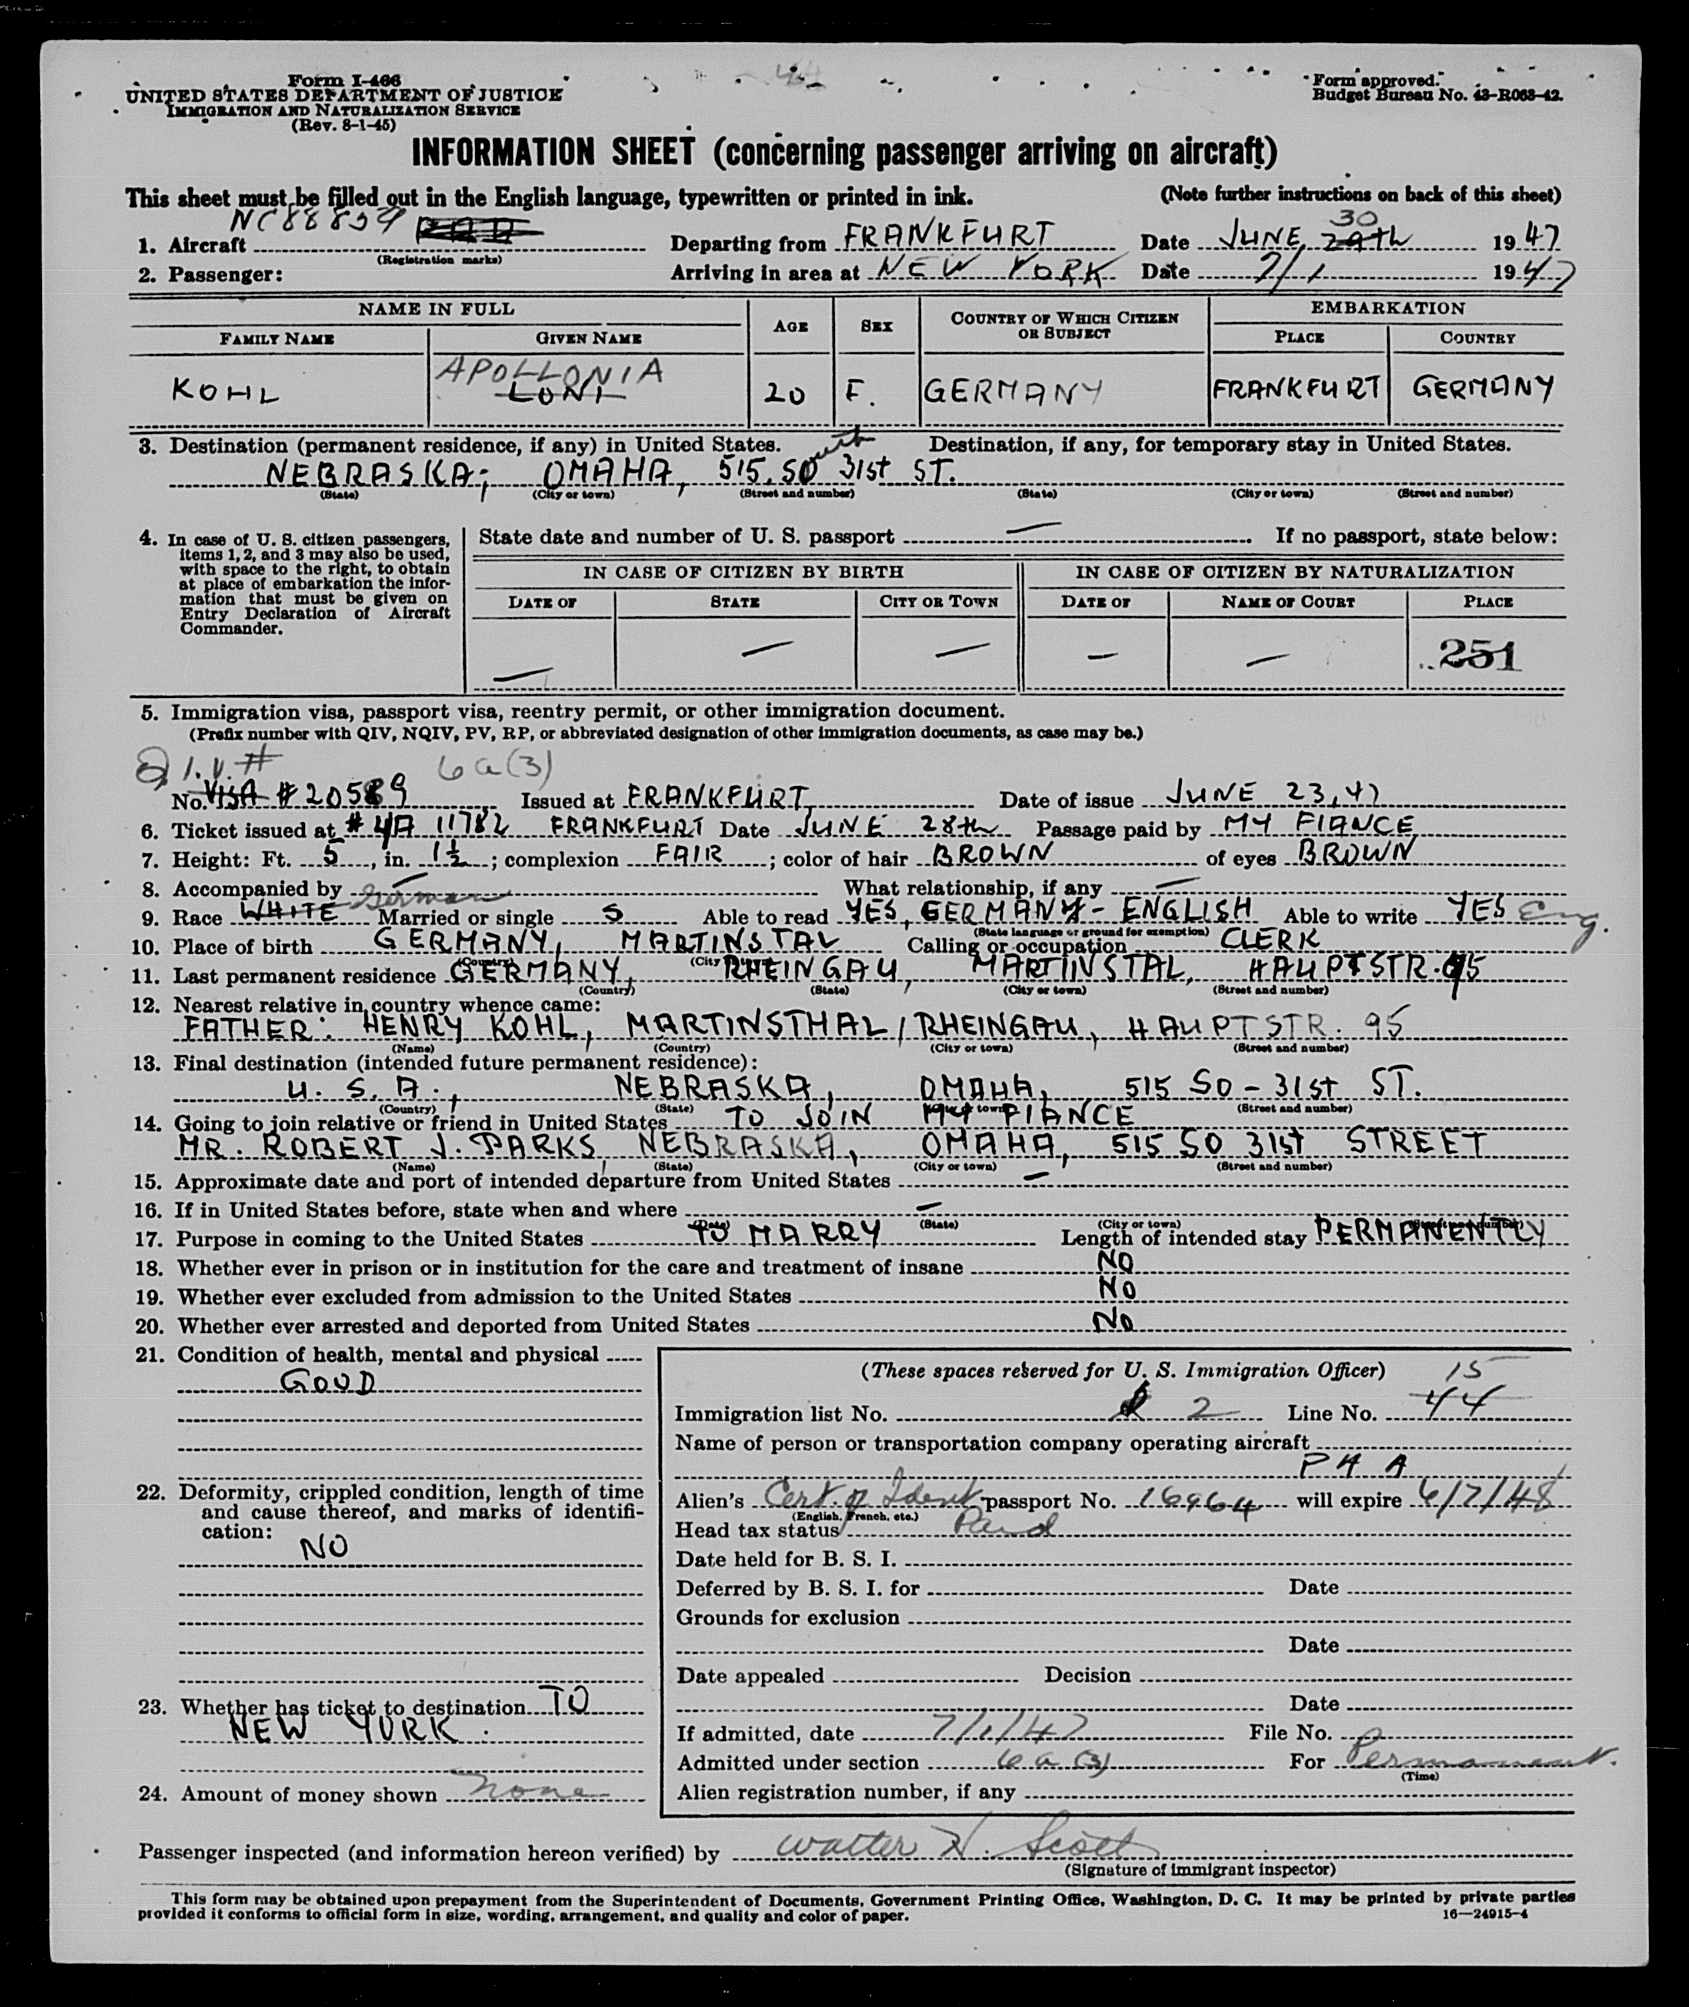 Form I-466
UNITED STATES DEPARTMENT OF JUSTICE
IMMIGRATION AND NATURALIZATION SERVICE
(Rev. 8-1-45)
Form approved.
Budget Bureau No. 43-R063-42.
INFORMATION SHEET (concerning passenger arriving on aircraft)
This sheet must be filled out in the English language, typewritten or printed in ink. (Note further instructions on back of this sheet)
NC88859 30
1. Aircraft PAA Departing from FRANKFURT Date JUNE, 29th 1947
(Registration marks)
2. Passenger: Arriving in area at NEW YORK Date 7/1 1947
NAME IN FULL AGE SEX COUNTRY OF WHICH CITIZEN OR SUBJECT EMBARKATION
FAMILY NAME GIVEN NAME PLACE COUNTRY
APOLLONIA
KOHL LONI 20 F. GERMANY FRANKFURT GERMANY
3. Destination (permanent residence, if any) in United States. Destination, if any, for temporary stay in United States.
NEBRASKA; OMAHA, 515. SOuth 31st ST.
(State) (City or town) (Street and number) (State) (City or town) (Street and number)
4. In case of U. S. citizen passengers, items 1, 2, and 3 may also be used, with space to the right, to obtain at place of embarkation the information that must be given on Entry Declaration of Aircraft Commander.
State date and number of U. S. passport — If no passport, state below:
IN CASE OF CITIZEN BY BIRTH IN CASE OF CITIZEN BY NATURALIZATION
DATE OF STATE CITY OR TOWN DATE OF NAME OF COURT PLACE
— — — — — 251
5. Immigration visa, passport visa, reentry permit, or other immigration document.
(Prefix number with QIV, NQIV, PV, RP, or abbreviated designation of other immigration documents, as case may be.)
Q.I.V.# 6a(3)
No. VISA # 20589 Issued at FRANKFURT, Date of issue JUNE 23, 47
6. Ticket issued at # 4A 11782 FRANKFURT Date JUNE 28th Passage paid by MY FIANCE
7. Height: Ft. 5, in. 1½; complexion FAIR; color of hair BROWN of eyes BROWN
8. Accompanied by — What relationship, if any —
German
9. Race WHITE Married or single S Able to read YES, GERMANY - ENGLISH Able to write YES Eng.
(State language or ground for exemption)
10. Place of birth GERMANY, MARTINSTAL Calling or occupation CLERK
(Country) (City
11. Last permanent residence GERMANY, RHEINGAU, MARTINSTAL, HAUPTSTR. 95
(Country) (State) (City or town) (Street and number)
12. Nearest relative in country whence came:
FATHER: HENRY KOHL, MARTINSTHAL/RHEINGAU, HAUPTSTR. 95
(Name) (Country) (City or town) (Street and number)
13. Final destination (intended future permanent residence):
U. S. A., NEBRASKA, OMAHA, 515 SO - 31st ST.
(Country) (State) (City or town) (Street and number)
14. Going to join relative or friend in United States TO JOIN MY FIANCE
MR. ROBERT J. PARKS, NEBRASKA, OMAHA, 515 SO 31st STREET
(Name) (State) (City or town) (Street and number)
15. Approximate date and port of intended departure from United States —
16. If in United States before, state when and where —
(Date) (State) (City or town) (Street and number)
17. Purpose in coming to the United States TO MARRY Length of intended stay PERMANENTLY
18. Whether ever in prison or in institution for the care and treatment of insane NO
19. Whether ever excluded from admission to the United States NO
20. Whether ever arrested and deported from United States NO
21. Condition of health, mental and physical
GOOD
22. Deformity, crippled condition, length of time and cause thereof, and marks of identification:
NO
23. Whether has ticket to destination TO
NEW YORK.
24. Amount of money shown none
(These spaces reserved for U. S. Immigration Officer) 15
Immigration list No. 2 Line No. 44
Name of person or transportation company operating aircraft
PAA
Alien's Cert. of Ident. passport No. 16964 will expire 6/7/48
(English, French, etc.)
Head tax status Paid
Date held for B. S. I.
Deferred by B. S. I. for Date
Grounds for exclusion
Date
Date appealed Decision
Date
If admitted, date 7/1/47 File No.
Admitted under section 6a(3) For Permanent.
(Time)
Alien registration number, if any
Passenger inspected (and information hereon verified) by Walter H. Scott
(Signature of immigrant inspector)
This form may be obtained upon prepayment from the Superintendent of Documents, Government Printing Office, Washington, D. C. It may be printed by private parties
provided it conforms to official form in size, wording, arrangement, and quality and color of paper. 16—24915-4